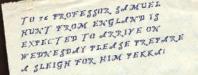 TO 76 PROFESSOR SAMUEL
HUNT FROM ENGLAND IS
EXPECTED TO ARRIVE ON
WEDNESDAY PLEASE PREPARE
A SLEIGH FOR HIM PEKKA: